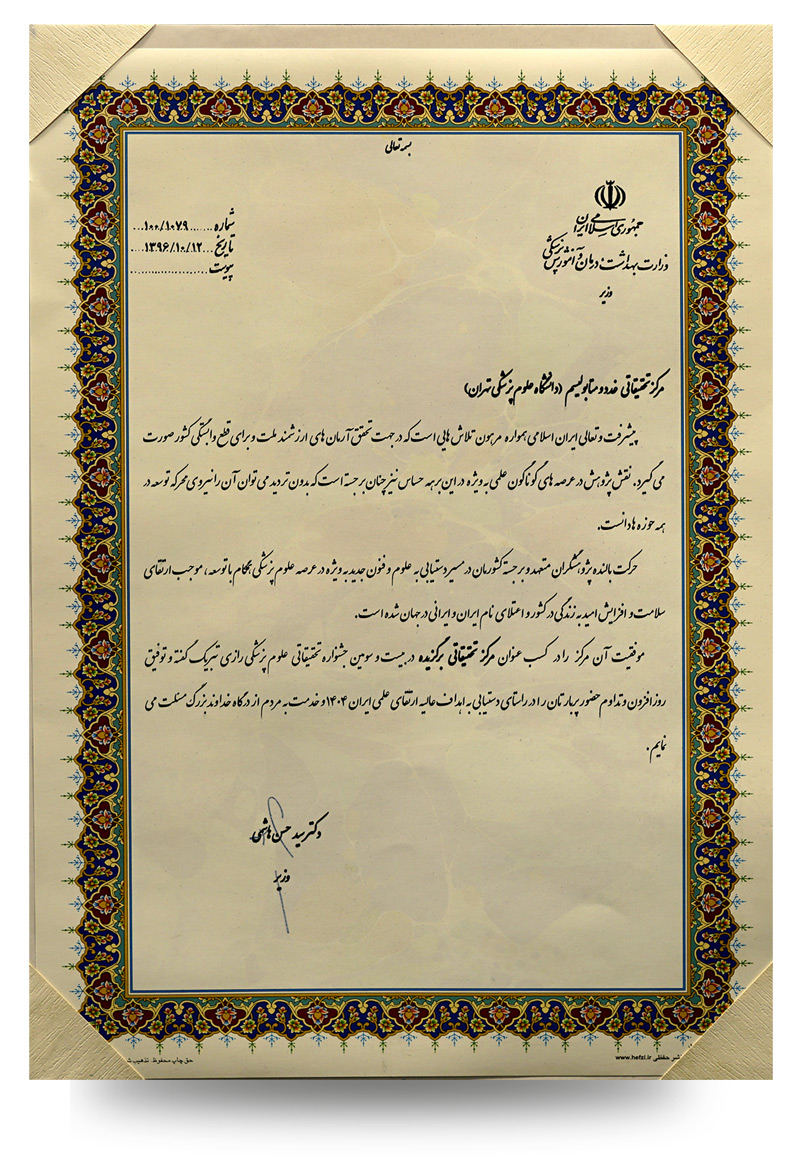 بسمه تعالی
جمهوری اسلامی ایران
وزارت بهداشت، درمان و آموزش پزشکی
وزیر
شماره .......۱۰۰/۱۰۷۹...
تاریخ ...۱۳۹۶/۱۰/۱۲...
پیوست ......................
مرکز تحقیقاتی غدد و متابولیسم (دانشگاه علوم پزشکی تهران)
پیشرفت و تعالی ایران اسلامی همواره مرهون تلاش هایی است که در جهت تحقق آرمان های ارزشمند ملت و برای قطع وابستگی کشور صورت
می گیرد. نقش پژوهش در عرصه های گوناگون علمی به ویژه در این برهه حساس نیز چنان برجسته است که بدون تردید می توان آن را نیروی محرکه توسعه در
همه حوزه ها دانست.
حرکت بالنده پژوهشگران متعهد و برجسته کشورمان در مسیر دستیابی به علوم و فنون جدید به ویژه در عرصه علوم پزشکی همگام با توسعه، موجب ارتقای
سلامت و افزایش امید به زندگی در کشور و اعتلای نام ایران و ایرانی در جهان شده است.
موفقیت آن مرکز را در کسب عنوان مرکز تحقیقاتی برگزیده در بیست و سومین جشنواره تحقیقاتی علوم پزشکی رازی تبریک گفته و توفیق
روز افزون و تداوم حضور پربارتان را در راستای دستیابی به اهداف عالیه ارتقای علمی ایران ۱۴۰۴ و خدمت به مردم از درگاه خداوند بزرگ مسئلت می
نمایم.
دکتر سید حسن هاشمی
وزیر
شر حفظی www.hefzi.ir
حق چاپ محفوظ. تذهیب ش